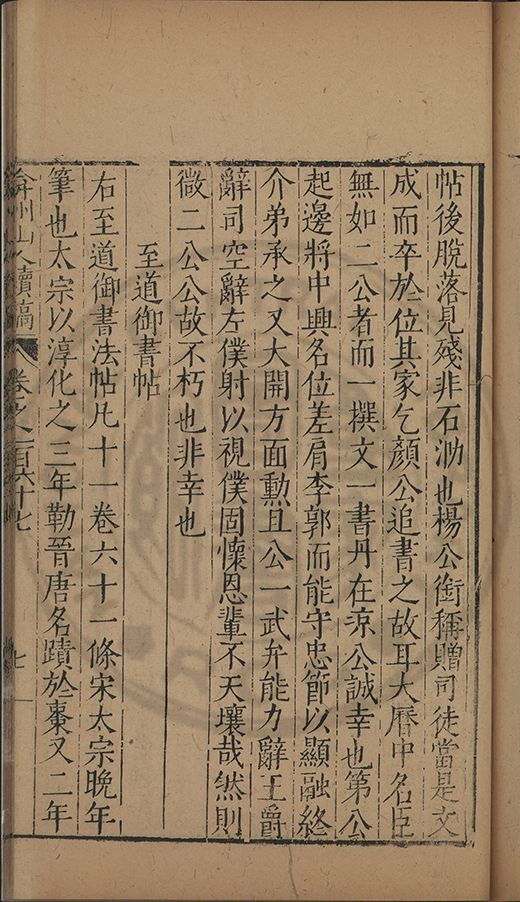 帖後脫落見殘非石泐也楊公銜稱贈司徒當是文
成而卒於位其家乞顏公追書之故耳大曆中名臣
無如二公者而一撰文一書丹在涼公誠幸也第公
起邊將中興名位差肩李郭而能守忠節以顯融終
介弟承之又大開方面勲且公一武弁能力辭王爵
辭司空辭左僕射以視僕固懷恩輩不天壤哉然則
微二公公故不朽也非幸也
至道御書帖
右至道御書法帖凡十一卷六十一條宋太宗晚年
筆也太宗以淳化之三年勒晉唐名蹟於棗又二年
弇州山人續稿
卷之一百六十七
七